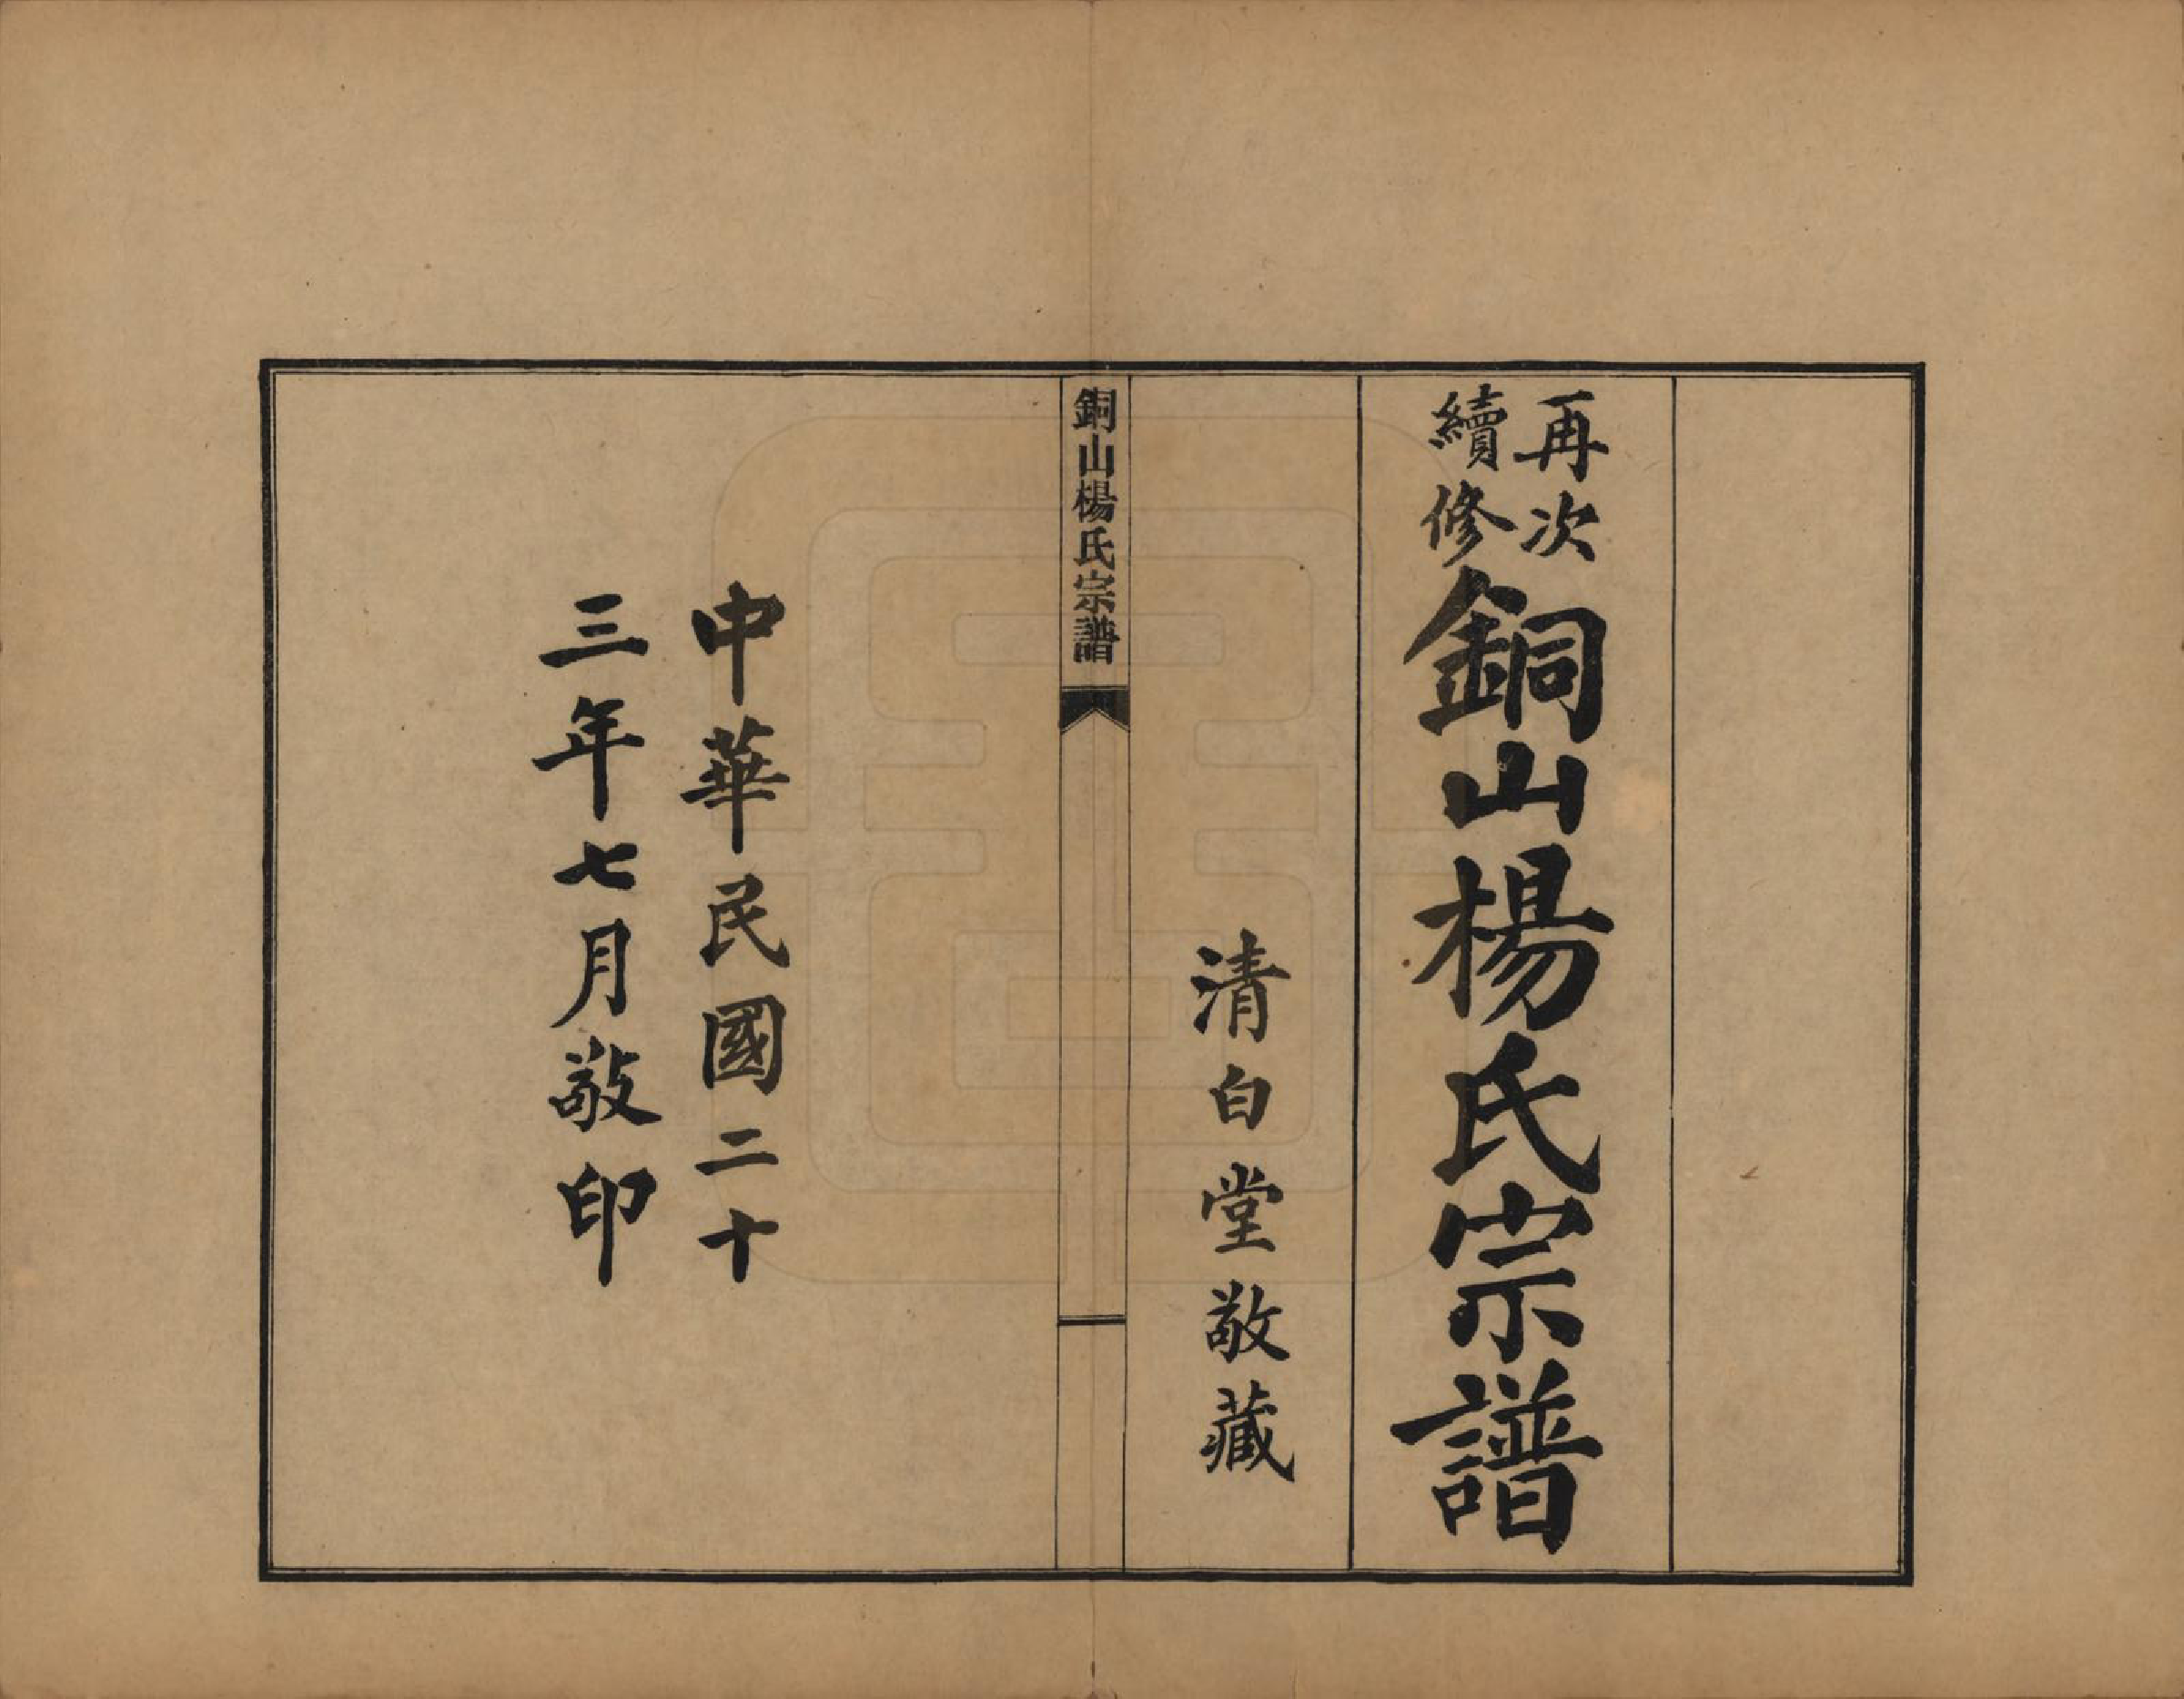 再次
續修
銅山楊氏宗譜
清白堂敬藏
銅山楊氏宗譜
中華民國二十
三年七月敬印